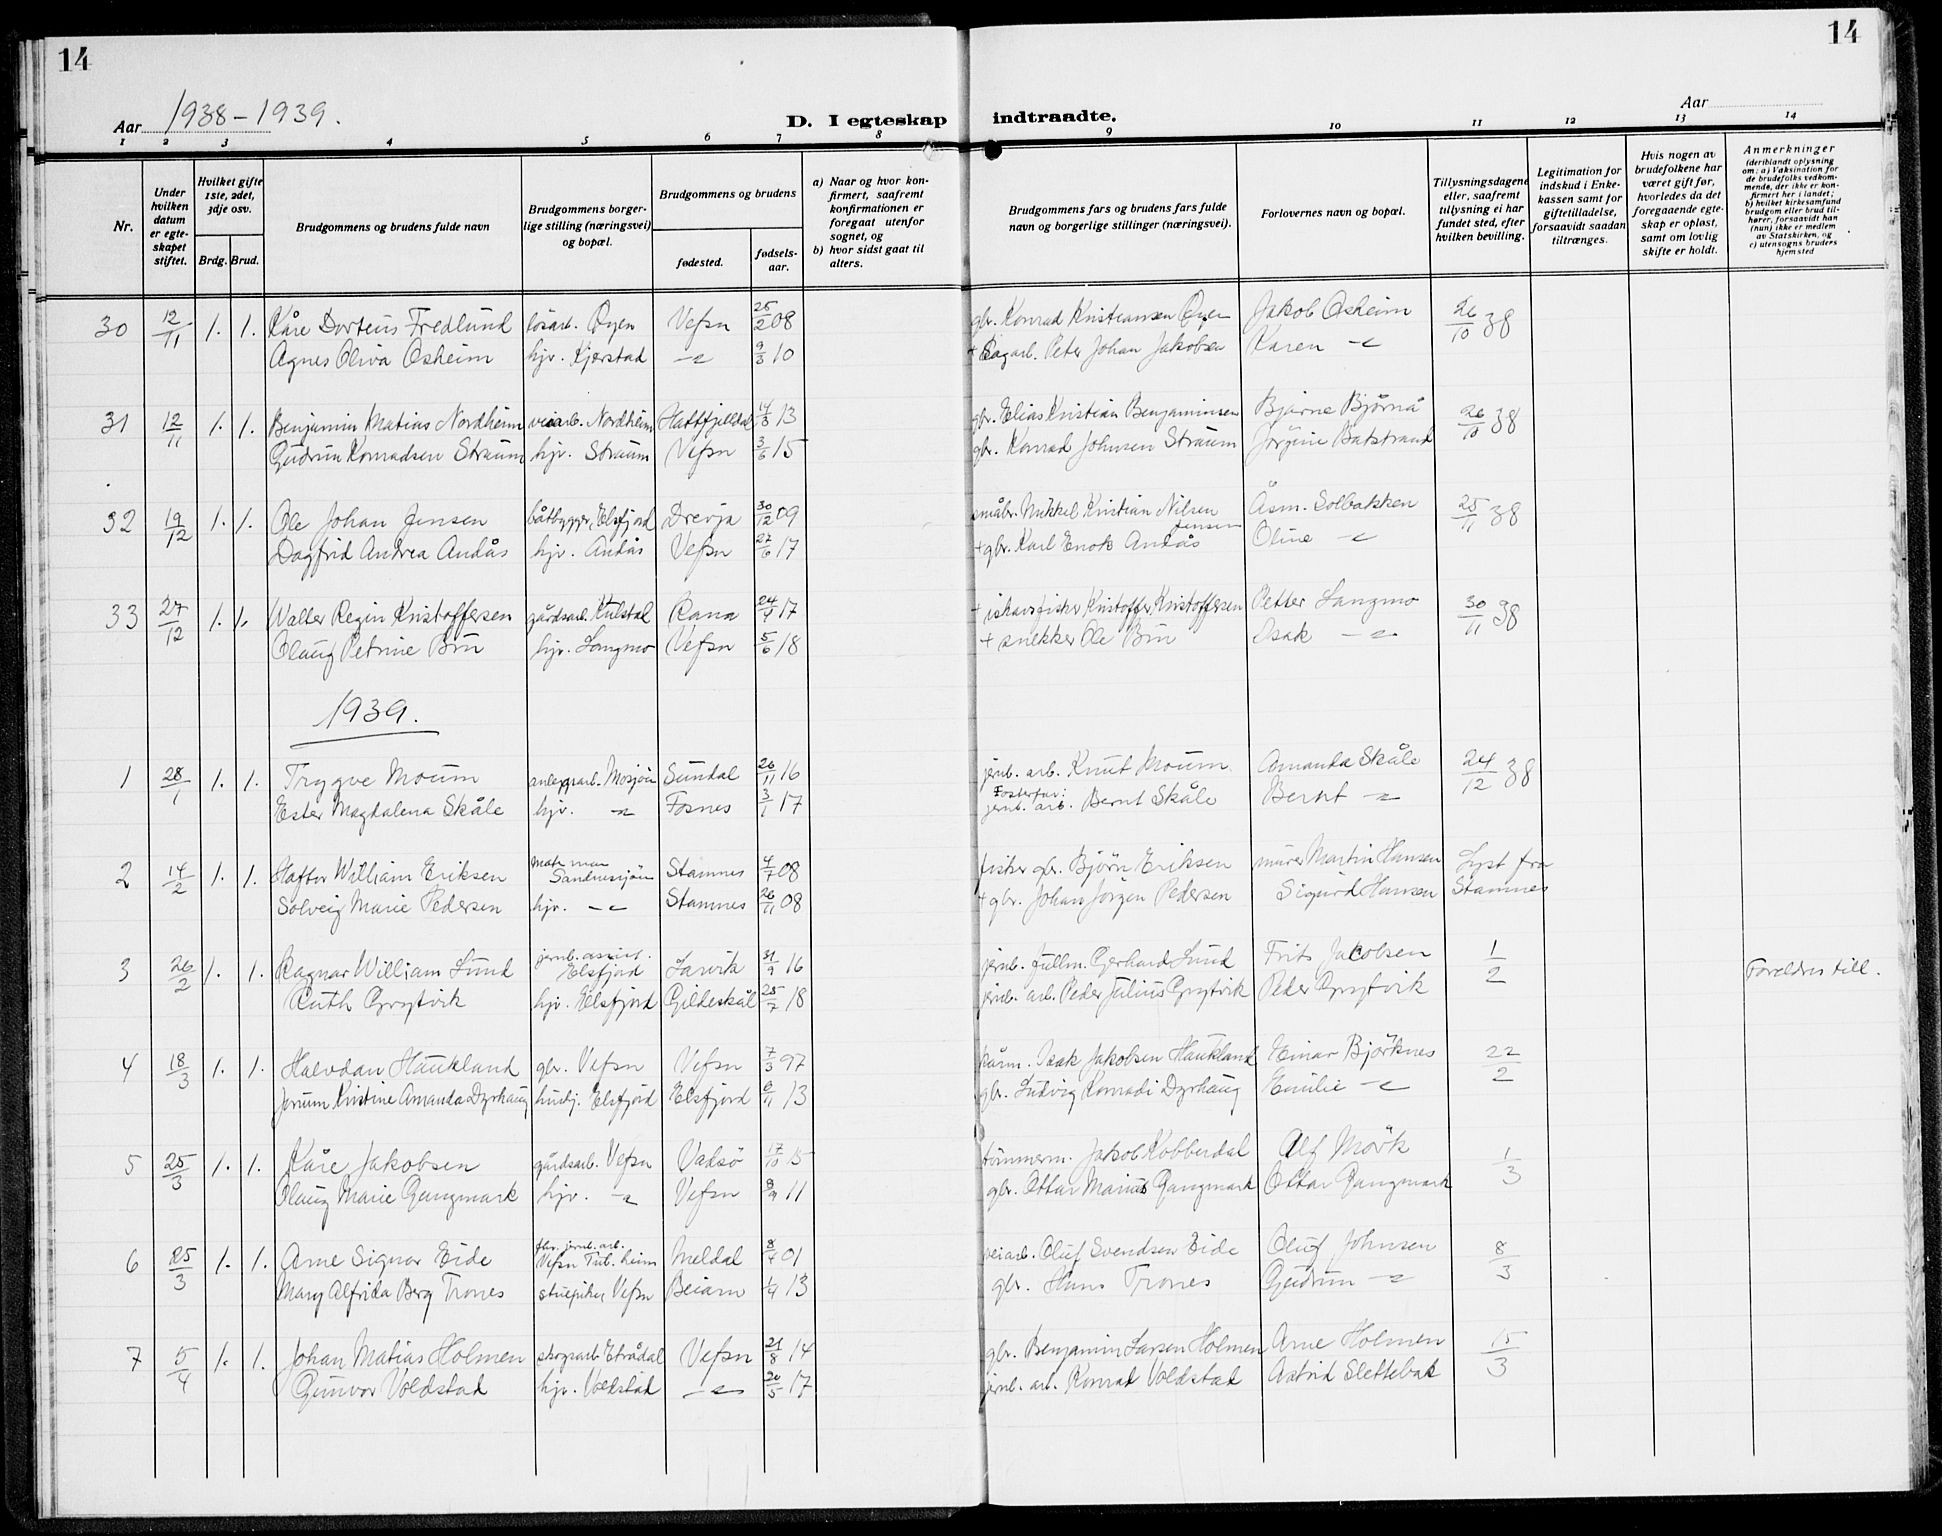 14
14
Aar 1938-1939.
D. I egteskap indtraadte.
Aar
1 2 3 4 5 6 7 8 9 10 11 12 13 14
Nr.
Under hvilken datum er egteskapet stiftet.
Hvilket gifte 1ste, 2det, 3dje osv.
Brdg. Brud.
Brudgommens og brudens fulde navn
Brudgommens borgerlige stilling (næringsvei) og bopæl.
Brudgommens og brudens
fødested.
fødselsaar.
a) Naar og hvor konfirmert, saafremt konfirmationen er foregaaet utenfor sognet, og
b) hvor sidst gaat til alters.
Brudgommens fars og brudens fars fulde navn og borgerlige stillinger (næringsvei).
Forlovernes navn og bopæl.
Tillysningsdagene eller, saafremt tillysning ei har fundet sted, efter hvilken bevilling.
Legitimation for indskud i Enkekassen samt for giftetilladelse, forsaavidt saadan tiltrænges.
Hvis nogen av brudefolkene har været gift før, hvorledes da det foregaaende egteskap er opløst, samt om lovlig skifte er holdt.
Anmerkninger
(deriblandt oplysning om: a) Vaksination for de brudefolks vedkommende, der ikke er konfirmert her i landet; b) hvilket kirkesamfund brudgom eller brud tilhører, forsaavidt han (hun) ikke er medlem av Statskirken, og c) utensogns bruders hjemsted
30 12/11 1. 1. Kåre Dorteus Fredlund løsarb. Øyen Vefsn 25/2 08 gbr. Konrad Kristiansen Øyen Jakob Osheim 26/10 38
Agnes Oliva Osheim hjv. Kjerstad -"- 9/3 10 + Sagarb. Peter Johan Jakobsen Karen -"-
31 12/11 1. 1. Benjamin Matias Nordheim veiarb. Nordheim Hattfjelldal 14/3 13 gbr. Elias Kristian Benjaminsen Bjarne Bjørnå 26/10 38
Gudrun Konradsen Straum hjv. Straum Vefsn 3/6 15 gbr. Konrad Johnsen Straum Jørgine Batstrand
32 19/12 1. 1. Ole Johan Jensen båtbygger, Elsfjord Drevja 30/12 09 småbr. Mikkel Kristian Nilsen Jensen Åsm. Solbakken 25/11 38
Dagfrid Andrea Andås hjv. Andås Vefsn 27/6 17 + gbr. Karl Enok Andås Oline -"-
33 27/12 1. 1. Walter Regin Kristoffersen gårdsarb. Kulstad Rana 24/4 17 + ishavsfisker Kristoffer Kristoffersen Petter Langmo 30/11 38
Olaug Petrine Bru hjv. Langmo Vefsn 5/6 18 + snekker Ole Bru Isak -"-
1939.
1 28/1 1. 1. Trygve Moum anlegsarb. Mosjøen Sundal 26/11 16 jernb. arb. Knut Moum Amanda Skåle 24/12 38
Ester Magdalena Skåle hjv. -"- Fosnes 3/1 17 Fosterfar: jernb. arb. Bernt Skåle Bernt -"-
2 14/2 1. 1. Haftor William Eriksen Sandnessjøen Stamnes 4/7 08 fisker gbr. Bjørn Eriksen murer Martin Hansen Lyst fra
Solveig Marie Pedersen hjv. -"- Stamnes 26/11 08 + gbr. Johan Jørgen Pedersen Sigurd Hansen Stamnes
3 26/2 1. 1. Ragnar William Lund jernb. assist. Elsfjord Larvik 31/9 16 jernb. fullm. Gerhard Lund Frits Jakobsen 1/2 Foreldres till.
Ruth Grytvik hjv. Elsfjord Gildeskål 25/7 18 jernb. arb. Peder Julius Grytvik Peder Grytvik
4 18/3 1. 1. Halvdan Haukland gbr. Vefsn Vefsn 7/3 97 kårm. Isak Jakobsen Haukland Einar Bjørknes 22/2
Kristine Amanda Dyrhaug Elsfjord Elsfjord 6/11 13 gbr. Ludvig Konradi Dyrhaug Emilie -"-
5 25/3 1. 1. Kåre Jakobsen gårdsarb. Vefsn Vadsö 17/10 15 tömmerm. Jakob Kobberdal Alf Mörk 1/3
Olaug Marie Gangmark hjv. -"- Vefsn 8/9 11 gbr. Ottar Marius Gangmark Ottar Gangmark
6 25/3 1. 1. Arne Signar Eide jernb. arb. Vefsn Tub. heim Meldal 8/4 01 veiarb. Oluf Svendsen Eide Oluf Johnsen 8/3
Mary Alfrida Berg Trones stuepike, Vefsn Beiarn 1/4 13 gbr. Hans Trones Gudrun -"-
7 5/4 1. 1. Johan Matias Holmen skogsarb. Vefsn 21/8 14 gbr. Benjamin Larsen Holmen Arne Holmen 15/3
Gunvor Voldstad hjv. Voldstad -"- 20/5 17 jernb. arb. Konrad Voldstad Astrid Slettebak